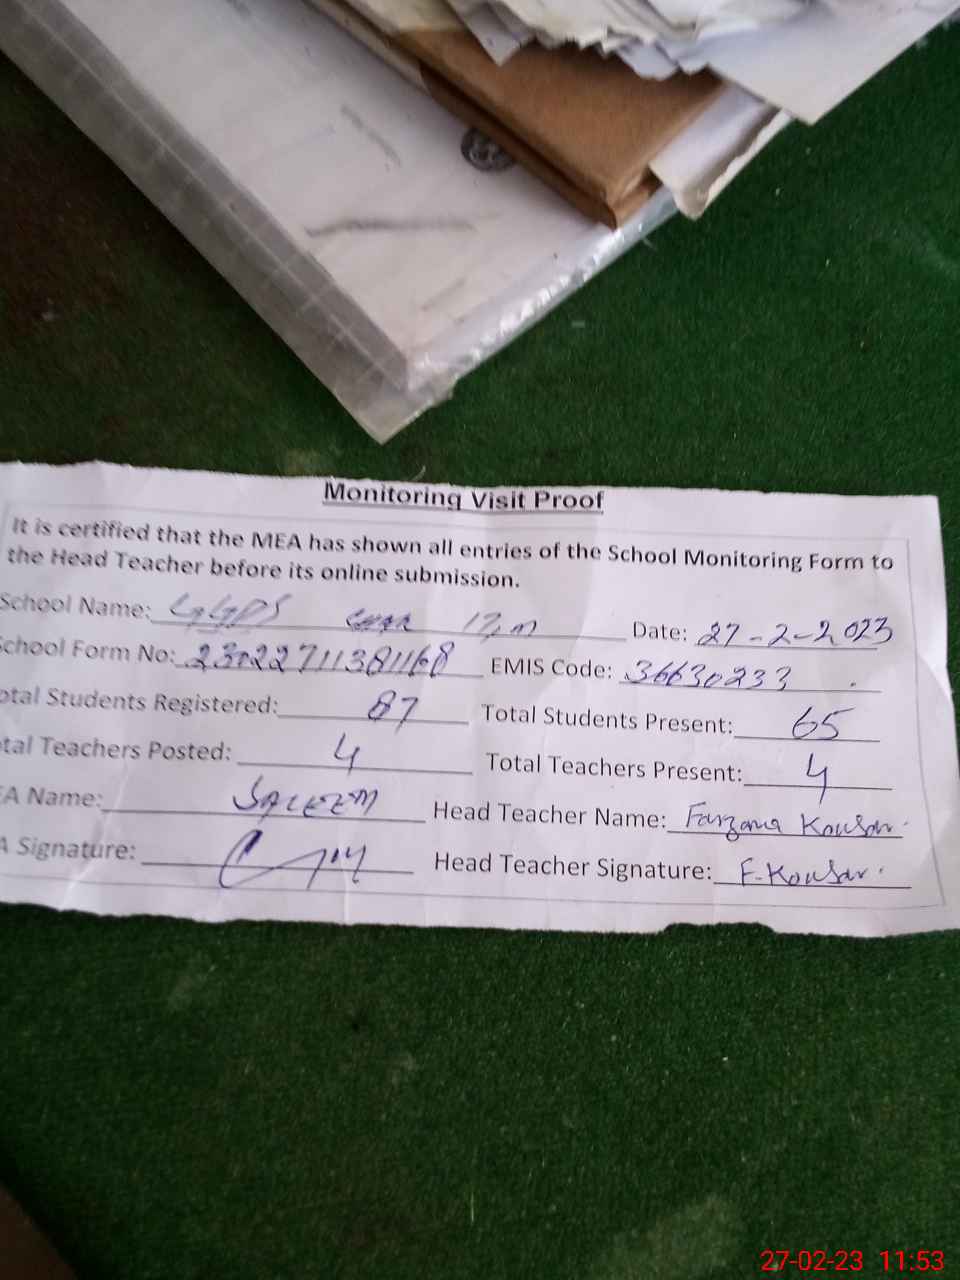 Monitoring Visit Proof
It is certified that the MEA has shown all entries of the School Monitoring Form to
the Head Teacher before its online submission.
School Name: GGPS 17,m Date: 27-2-2023
School Form No: EMIS Code: 36630233
otal Students Registered: 87 Total Students Present: 65
tal Teachers Posted: 4 Total Teachers Present: 4
EA Name: SALEEM Head Teacher Name: Farzana Kousar.
A Signature: Head Teacher Signature: F.Kousar.
27-02-23 11:53